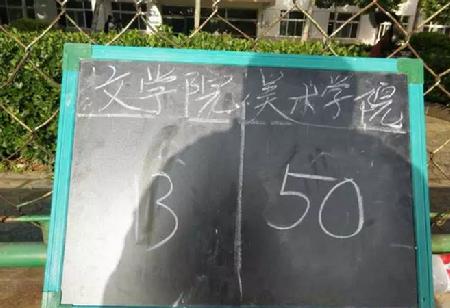 文学院 美术学院
13 50